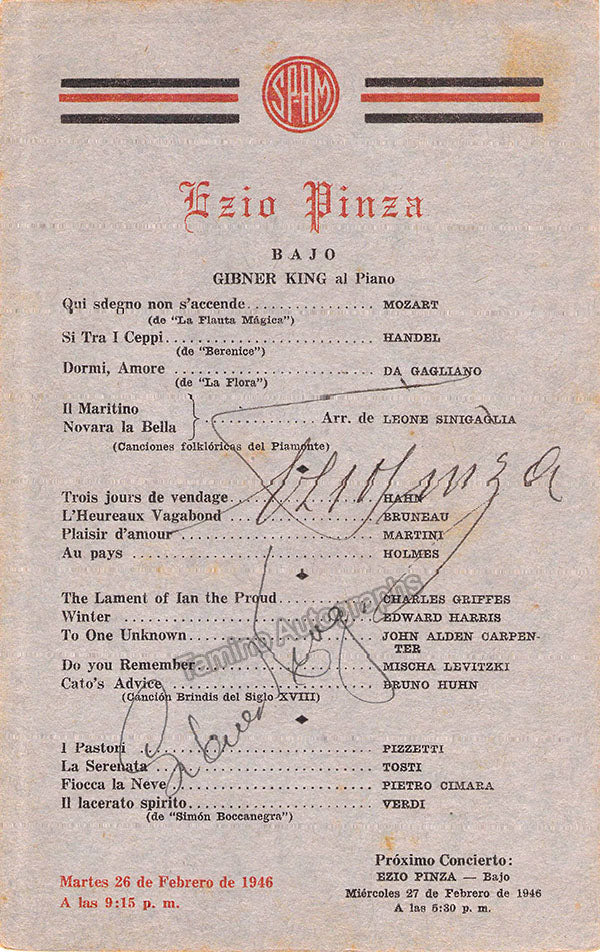 SPAM
Ezio Pinza
BAJO
GIBNER KING al Piano
Qui sdegno non s'accende.................. MOZART
(de "La Flauta Mágica")
Si Tra I Ceppi.............................. HANDEL
(de "Berenice")
Dormi, Amore............................. DA GAGLIANO
(de "La Flora")
Il Maritino
Novara la Bella } ................. Arr. de LEONE SINIGAGLIA
(Canciones folklóricas del Piamonte)
Ezio Pinza
Trois jours de vendage..................... HAHN
L'Heureaux Vagabond ...................... BRUNEAU
Plaisir d'amour ............................ MARTINI
Au pays .................................. HOLMES
The Lament of Ian the Proud............... CHARLES GRIFFES
Winter ................................... EDWARD HARRIS
To One Unknown.......................... JOHN ALDEN CARPEN-
TER
Do you Remember......................... MISCHA LEVITZKI
Cato's Advice ............................. BRUNO HUHN
(Canción Brindis del Siglo XVIII)
Gibner King
Tamino Autographs
I Pastori .................................. PIZZETTI
La Serenata............................... TOSTI
Fiocca la Neve............................ PIETRO CIMARA
Il lacerato spirito.......................... VERDI
(de "Simón Boccanegra")
Martes 26 de Febrero de 1946
A las 9:15 p. m.
Próximo Concierto:
EZIO PINZA — Bajo
Miércoles 27 de Febrero de 1946
A las 5:30 p. m.